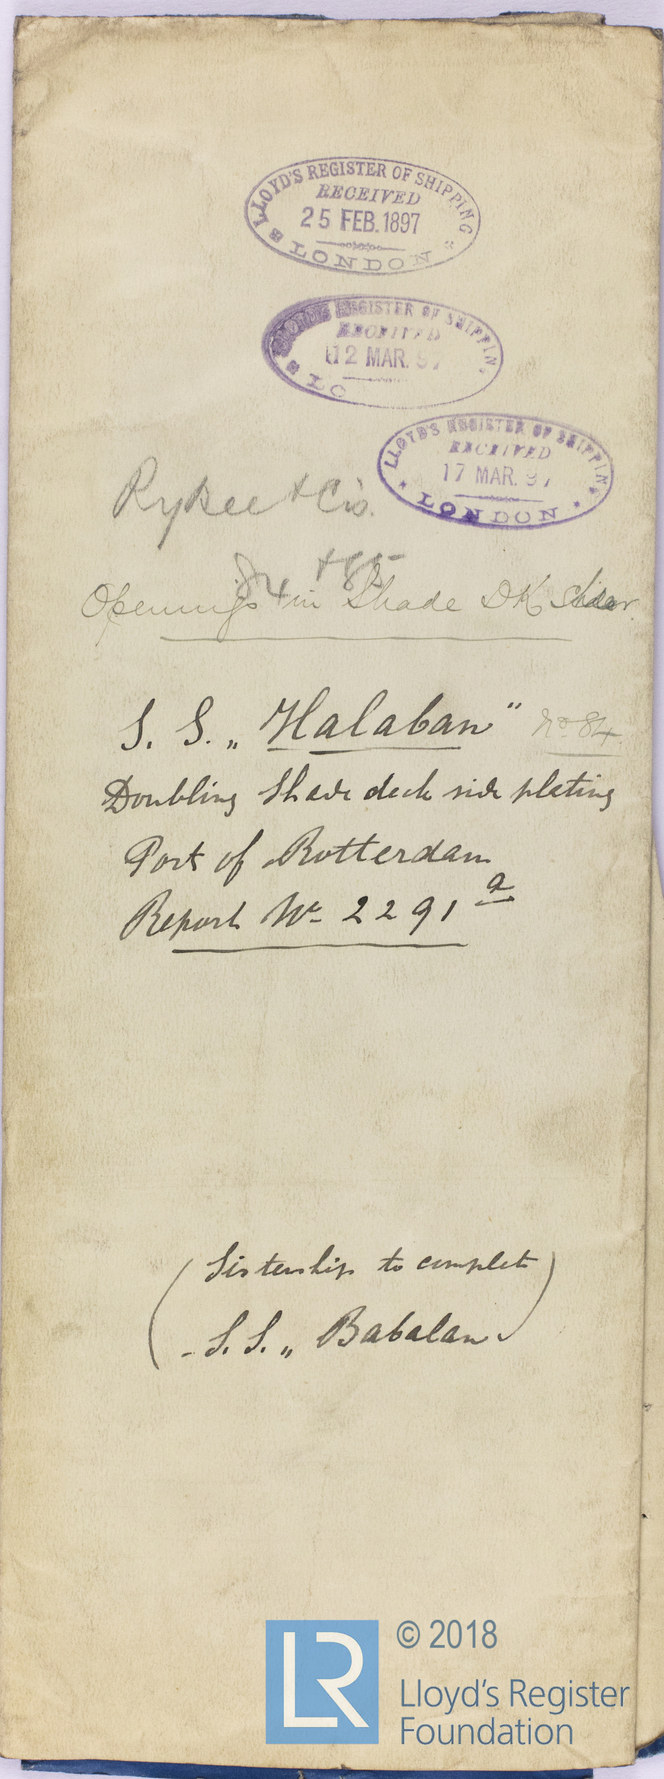 LLOYD'S REGISTER OF SHIPPING
RECEIVED
25 FEB. 1897
LONDON
LLOYD'S REGISTER OF SHIPPIN
RECEIVED
12 MAR. 97
LO
LLOYD'S REGISTER OF SHIPPING
RECEIVED
17 MAR. 97
LONDON
Rykee & Cos.
84 + 85
Openings in Shade DK
S. S. „Halaban" No 84
Doubling Shade deck side plating
Port of Rotterdam
Report No 2291 a
(Sistership to complete
- S.S. „ Babalan)
© 2018
LR
Lloyd's Register
Foundation